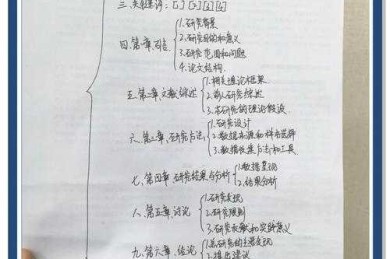 三、关键词: [1] [2] [3] [4]
四、第一章、引言
1.研究背景
2.研究目的和意义
3.研究范围和问题
4.论文结构.
五、第二章、文献综述
1.相关理论框架
2.前人研究综述
3.本研究的理论假设
六、第三章、研究方法
1.研究设计
2.数据来源和样本选择
3.数据收集方法和工具
七、第四章、研究结果与分析
1.数据呈现
2.结果分析
八、第五章、讨论
1.研究发现
2.研究限制
3.研究贡献和实践意义
九、第六章、结论
1.总研究的主要发现
2.提出建议